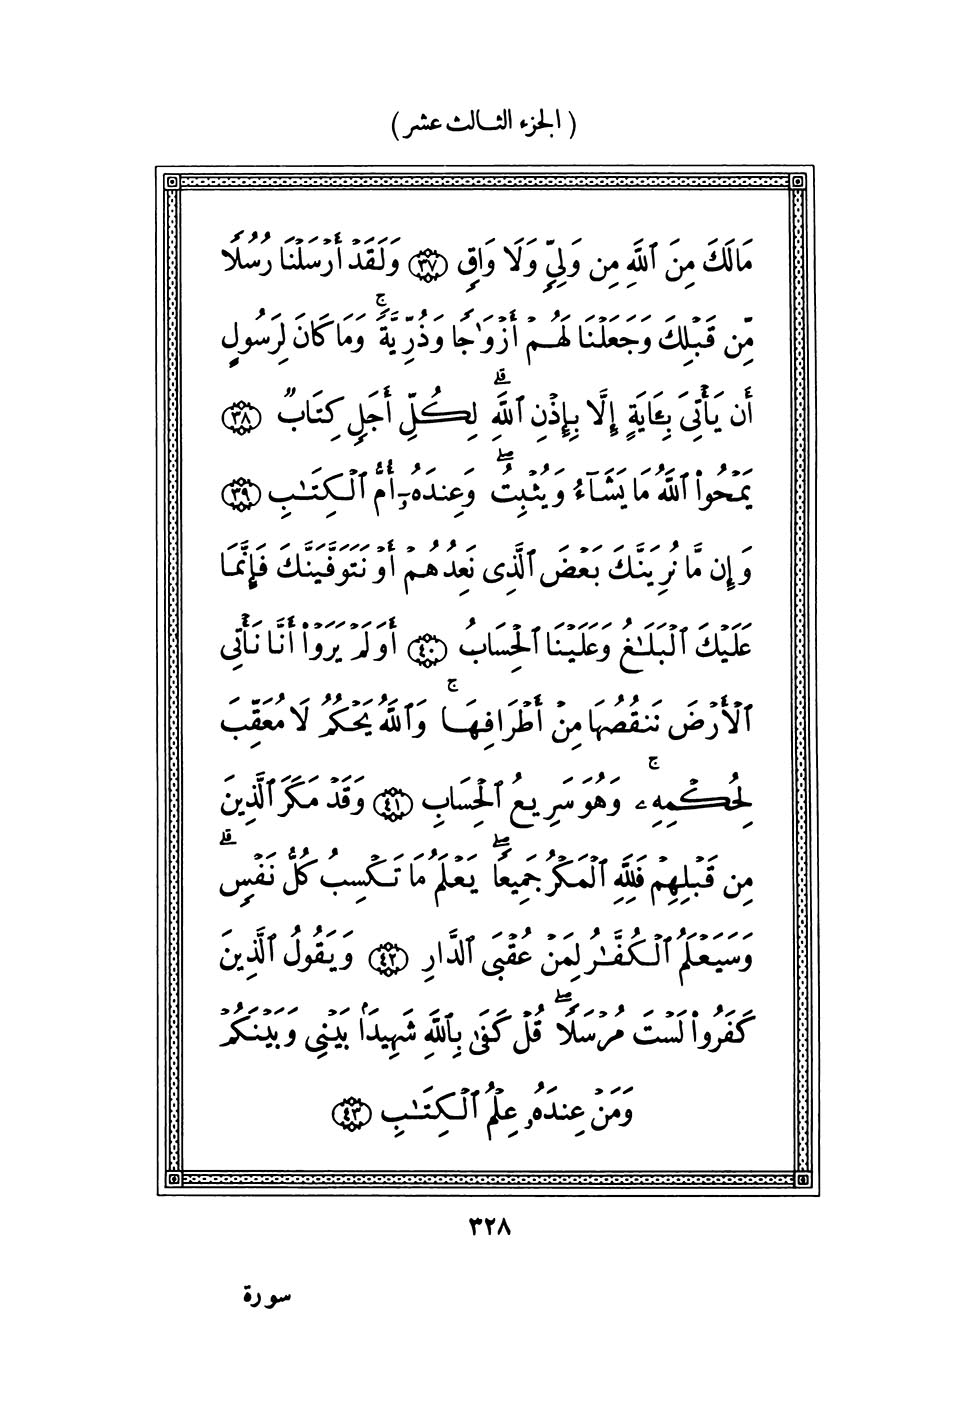 ( الجزء الثالث عشر )
مَالَكَ مِنَ ٱللَّهِ مِن وَلِيٍّ وَلَا وَاقٍ ٣٧ وَلَقَدْ أَرْسَلْنَا رُسُلًا
مِّن قَبْلِكَ وَجَعَلْنَا لَهُمْ أَزْوَٰجًا وَذُرِّيَّةً ۚ وَمَا كَانَ لِرَسُولٍ
أَن يَأْتِىَ بِـَٔايَةٍ إِلَّا بِإِذْنِ ٱللَّهِ ۗ لِكُلِّ أَجَلٍ كِتَابٌ ٣٨
يَمْحُوا۟ ٱللَّهُ مَا يَشَآءُ وَيُثْبِتُ ۖ وَعِندَهُۥٓ أُمُّ ٱلْكِتَـٰبِ ٣٩
وَإِن مَّا نُرِيَنَّكَ بَعْضَ ٱلَّذِى نَعِدُهُمْ أَوْ نَتَوَفَّيَنَّكَ فَإِنَّمَا
عَلَيْكَ ٱلْبَلَـٰغُ وَعَلَيْنَا ٱلْحِسَابُ ٤٠ أَوَلَمْ يَرَوْا۟ أَنَّا نَأْتِى
ٱلْأَرْضَ نَنقُصُهَا مِنْ أَطْرَافِهَا ۚ وَٱللَّهُ يَحْكُمُ لَا مُعَقِّبَ
لِحُكْمِهِۦ ۚ وَهُوَ سَرِيعُ ٱلْحِسَابِ ٤١ وَقَدْ مَكَرَ ٱلَّذِينَ
مِن قَبْلِهِمْ فَلِلَّهِ ٱلْمَكْرُ جَمِيعًا ۖ يَعْلَمُ مَا تَكْسِبُ كُلُّ نَفْسٍ ۗ
وَسَيَعْلَمُ ٱلْكُفَّـٰرُ لِمَنْ عُقْبَى ٱلدَّارِ ٤٢ وَيَقُولُ ٱلَّذِينَ
كَفَرُوا۟ لَسْتَ مُرْسَلًا ۖ قُلْ كَفَىٰ بِٱللَّهِ شَهِيدًۢا بَيْنِى وَبَيْنَكُمْ
وَمَنْ عِندَهُۥ عِلْمُ ٱلْكِتَـٰبِ ٤٣
٣٢٨
سورة